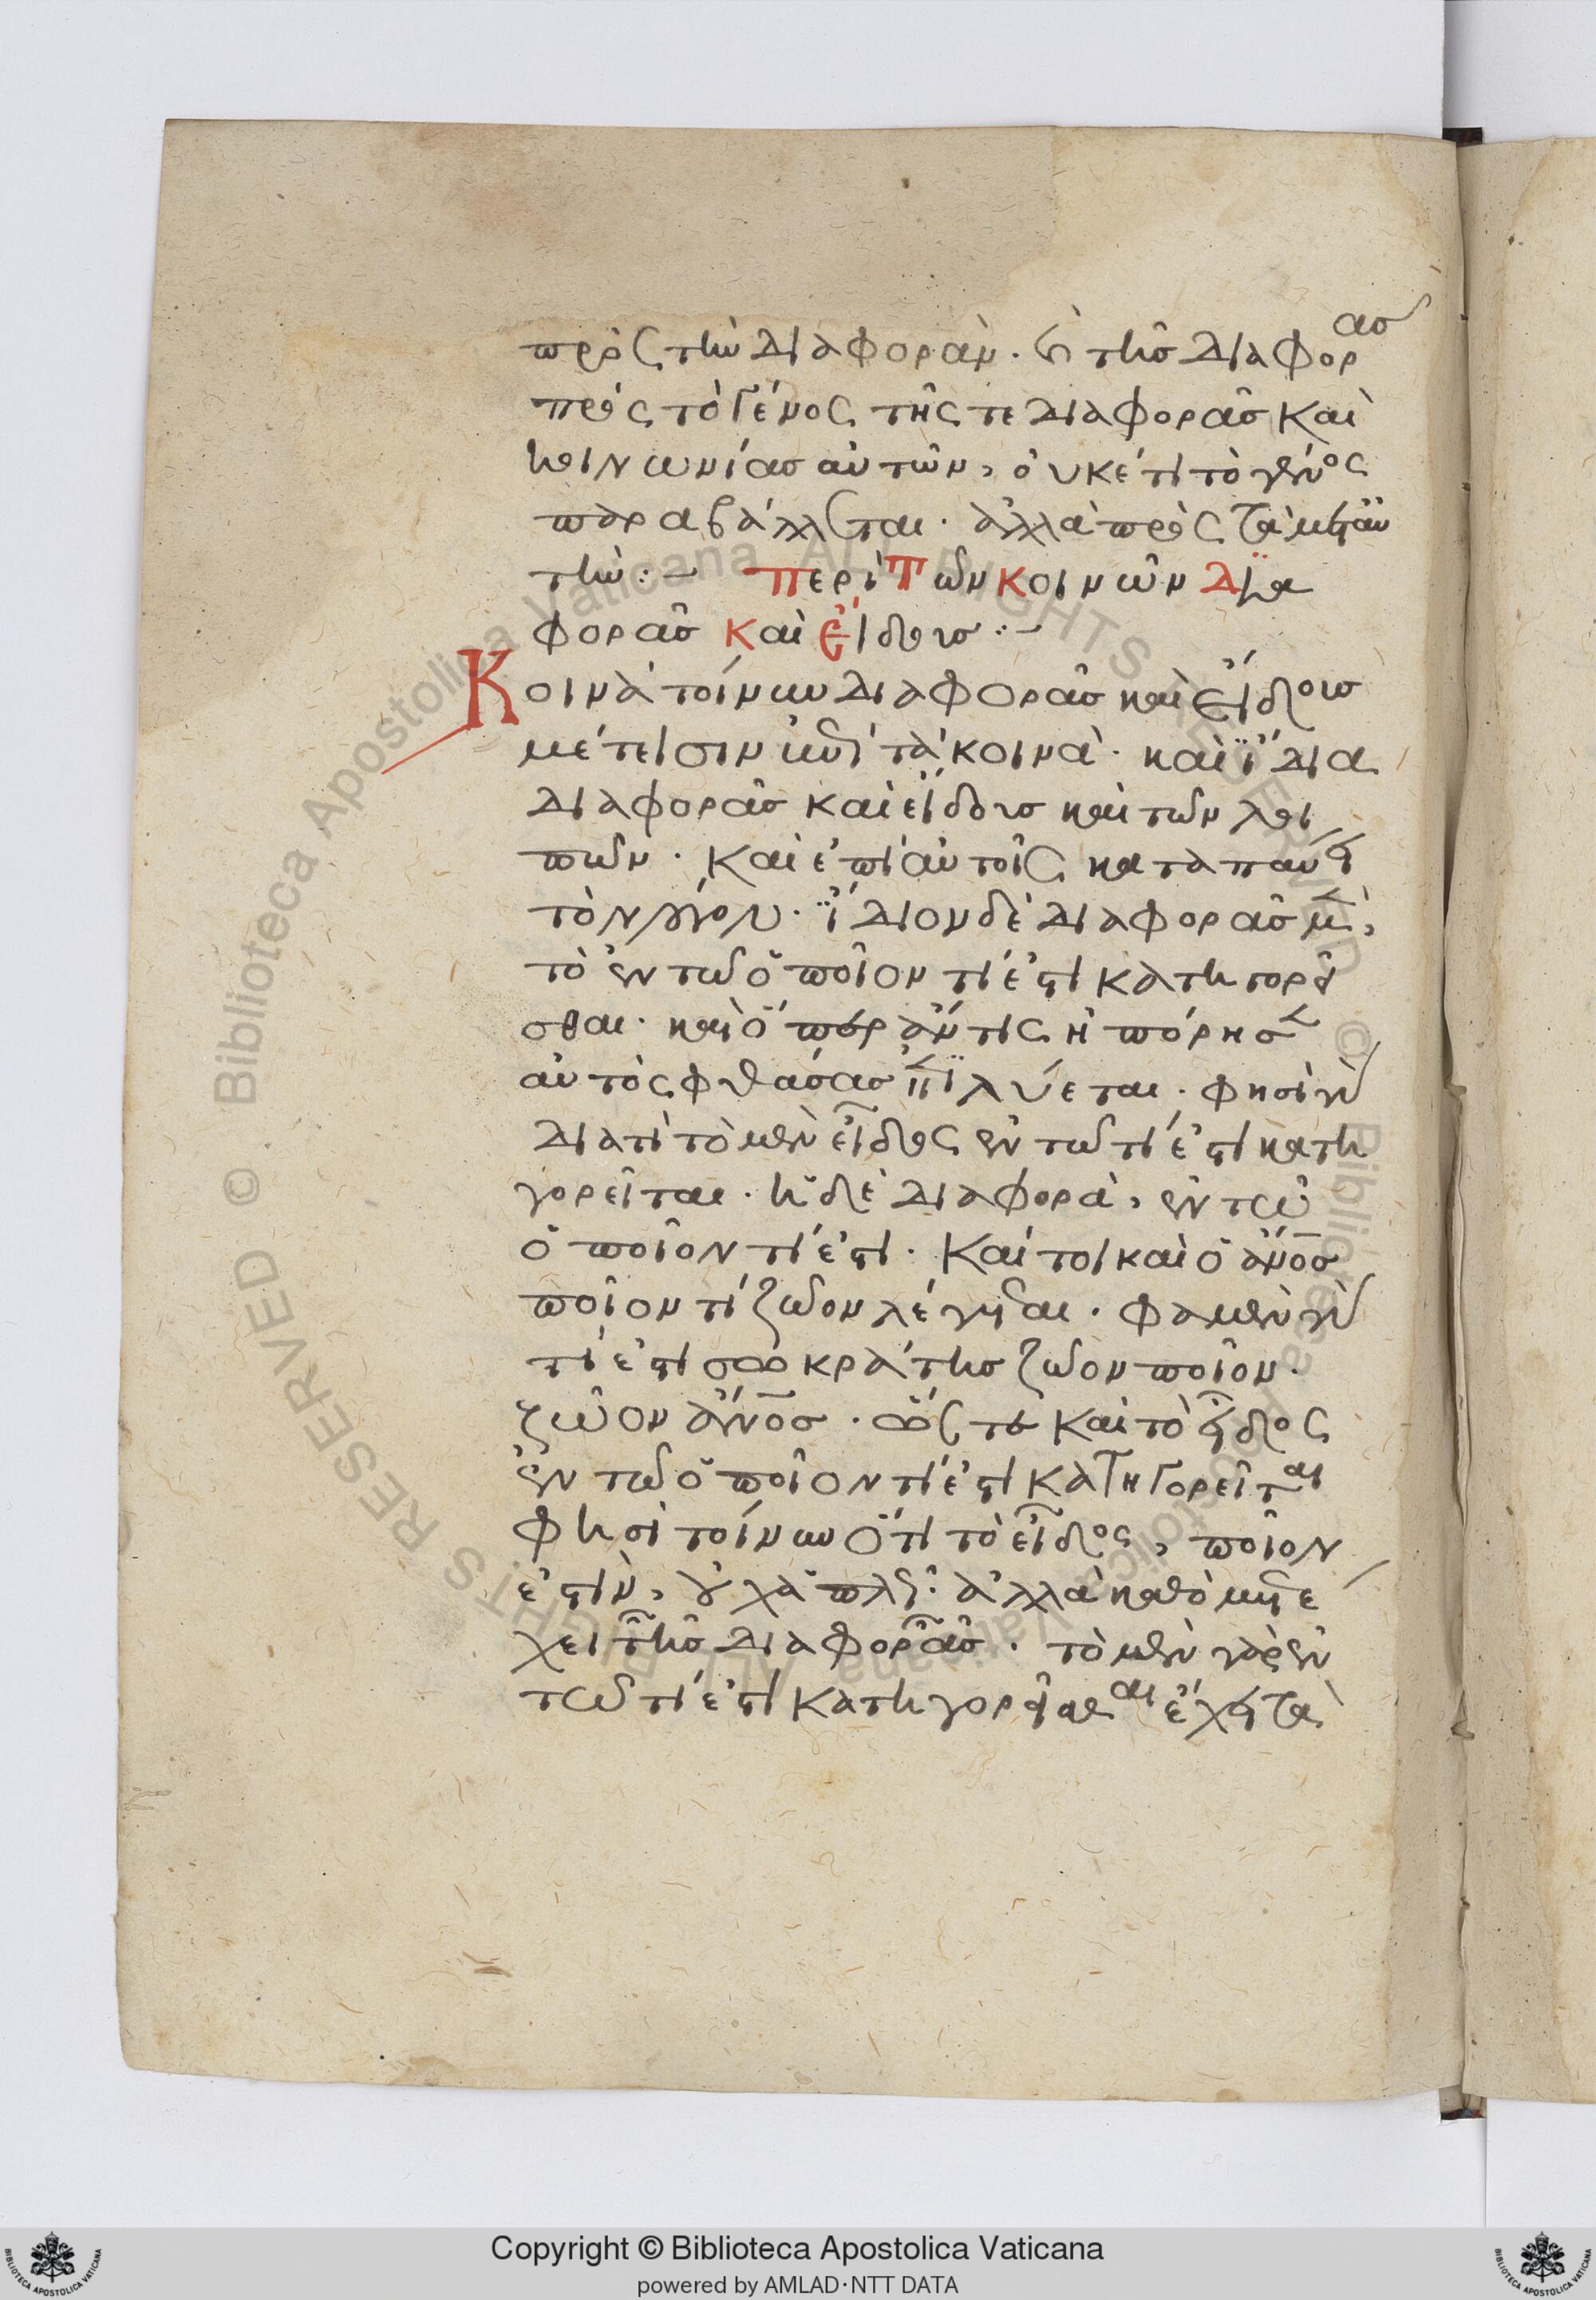 πρὸς τὴν διαφοράν. καὶ τῆς διαφορᾶς
πρὸς τὸ γένος τῆς τε διαφορᾶς καὶ
κοινωνίας αὐτῶν, οὐκέτι τὸ γένος
παραβάλλεται. ἀλλὰ πρὸς τὰ μετ' αὐ
τήν :~ Περὶ Τῶν Κοινῶν Δϊα
φορᾶς Καὶ Εἴδους :~
Κοινὰ τοίνυν διαφορᾶς καὶ εἴδους
μέτεισιν τὰ κοινά. καὶ ἴδια
διαφορᾶς καὶ εἴδους καὶ τῶν λοι
πῶν. Καὶ ἐπὶ αὐτοῖς καταπαύει
τὸν λόγον. ἴδιον δὲ διαφορᾶς μὲν,
τὸ ἐν τῶ ὁποῖον τί ἐστι κατηγορεῖ
σθαι. καὶ ὅπερ ἄν τις ἠπόρησεν
αὐτὸς φθάσας ἐπιλύεται. φησὶ γὰρ
διατί τὸ μὲν εἶδος ἐν τῶ τί ἐστι κατη
γορεῖται. ἡ δὲ διαφορὰ, ἐν τῶ
ὁποῖον τί ἐστι. Καίτοι καὶ ὁ ἄνος
ποῖον τί ζῶον λέγεται. φαμὲν γὰρ
τί ἐστι σωκράτης ζῶον ποῖον.
ζῶον ἄνος. ὥστε καὶ τὸ εἶδος
ἐν τῶ ὁποῖον τί ἐστι κατηγορεῖται
φησὶ τοίνυν ὅτι τὸ εἶδος, ποῖον
ἐστιν, οὐχ ἁπλῶς. ἀλλὰ καθὸ μετέ
χει τῆς διαφορᾶς. τὸ μὲν γὰρ ἐν
τῶ τί ἐστι κατηγορεῖσθαι ἔχει τὰ
Copyright © Biblioteca Apostolica Vaticana
powered by AMLAD·NTT DATA